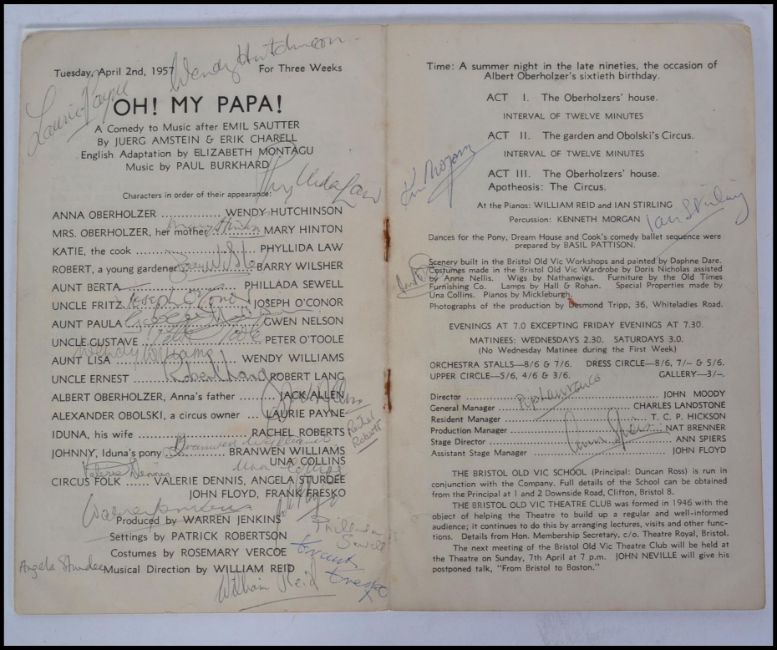 Wendy Hutchinson.
Tuesday, April 2nd, 1957 For Three Weeks
Laurie Payne
OH! MY PAPA!
A Comedy to Music after EMIL SAUTTER
By JUERG AMSTEIN & ERIK CHARELL
English Adaptation by ELIZABETH MONTAGU
Music by PAUL BURKHARD
Phyllida Law
Characters in order of their appearance:
ANNA OBERHOLZER ............ WENDY HUTCHINSON
MRS. OBERHOLZER, her mother ............ MARY HINTON
Mary Hinton
KATIE, the cook ............ PHYLLIDA LAW
ROBERT, a young gardener ............ BARRY WILSHER
AUNT BERTA ............ PHILLADA SEWELL
UNCLE FRITZ ............ JOSEPH O'CONOR
Joseph O'Conor
AUNT PAULA ............ GWEN NELSON
UNCLE GUSTAVE ............ PETER O'TOOLE
AUNT LISA ............ WENDY WILLIAMS
Wendy Williams
UNCLE ERNEST ............ ROBERT LANG
Robert Lang
ALBERT OBERHOLZER, Anna's father ............ JACK ALLEN
ALEXANDER OBOLSKI, a circus owner ............ LAURIE PAYNE
IDUNA, his wife ............ RACHEL ROBERTS
Rachel Roberts
JOHNNY, Iduna's pony ............ BRANWEN WILLIAMS
Branwen Williams
UNA COLLINS
Una Collins
Valerie Dennis
CIRCUS FOLK ............ VALERIE DENNIS, ANGELA STURDEE
JOHN FLOYD, FRANK FRESKO
Produced by WARREN JENKINS
Settings by PATRICK ROBERTSON
Phillada Sewell
Costumes by ROSEMARY VERCOE
Frank Fresko
Angela Sturdee
Musical Direction by WILLIAM REID
William Reid
Time: A summer night in the late nineties, the occasion of
Albert Oberholzer's sixtieth birthday.
ACT I. The Oberholzers' house.
INTERVAL OF TWELVE MINUTES
ACT II. The garden and Obolski's Circus.
INTERVAL OF TWELVE MINUTES
Ken Morgan
ACT III. The Oberholzers' house.
Apotheosis: The Circus.
At the Pianos: WILLIAM REID and IAN STIRLING
Ian Stirling
Percussion: KENNETH MORGAN
Dances for the Pony, Dream House and Cook's comedy ballet sequence were
prepared by BASIL PATTISON.
Scenery built in the Bristol Old Vic Workshops and painted by Daphne Dare.
Costumes made in the Bristol Old Vic Wardrobe by Doris Nicholas assisted
by Anne Nellis. Wigs by Nathanwigs. Furniture by the Old Times
Furnishing Co. Lamps by Hall & Rohan. Special Properties made by
Una Collins. Pianos by Mickleburgh.
Photographs of the production by Desmond Tripp, 36, Whiteladies Road.
EVENINGS AT 7.0 EXCEPTING FRIDAY EVENINGS AT 7.30.
MATINEES: WEDNESDAYS 2.30. SATURDAYS 3.0.
(No Wednesday Matinee during the First Week)
ORCHESTRA STALLS—8/6 & 7/6. DRESS CIRCLE—8/6, 7/- & 5/6.
UPPER CIRCLE—5/6, 4/6 & 3/6. GALLERY—3/-.
Director ............ JOHN MOODY
General Manager ............ CHARLES LANDSTONE
Resident Manager ............ T. C. P. HICKSON
Production Manager ............ NAT BRENNER
Stage Director ............ ANN SPIERS
Ann Spiers
Assistant Stage Manager ............ JOHN FLOYD
THE BRISTOL OLD VIC SCHOOL (Principal: Duncan Ross) is run in
conjunction with the Company. Full details of the School can be obtained
from the Principal at 1 and 2 Downside Road, Clifton, Bristol 8.
THE BRISTOL OLD VIC THEATRE CLUB was formed in 1946 with the
object of helping the Theatre to build up a regular and well-informed
audience; it continues to do this by arranging lectures, visits and other func-
tions. Details from Hon. Membership Secretary, c/o. Theatre Royal, Bristol.
The next meeting of the Bristol Old Vic Theatre Club will be held at
the Theatre on Sunday, 7th April at 7 p.m. JOHN NEVILLE will give his
postponed talk, "From Bristol to Boston."